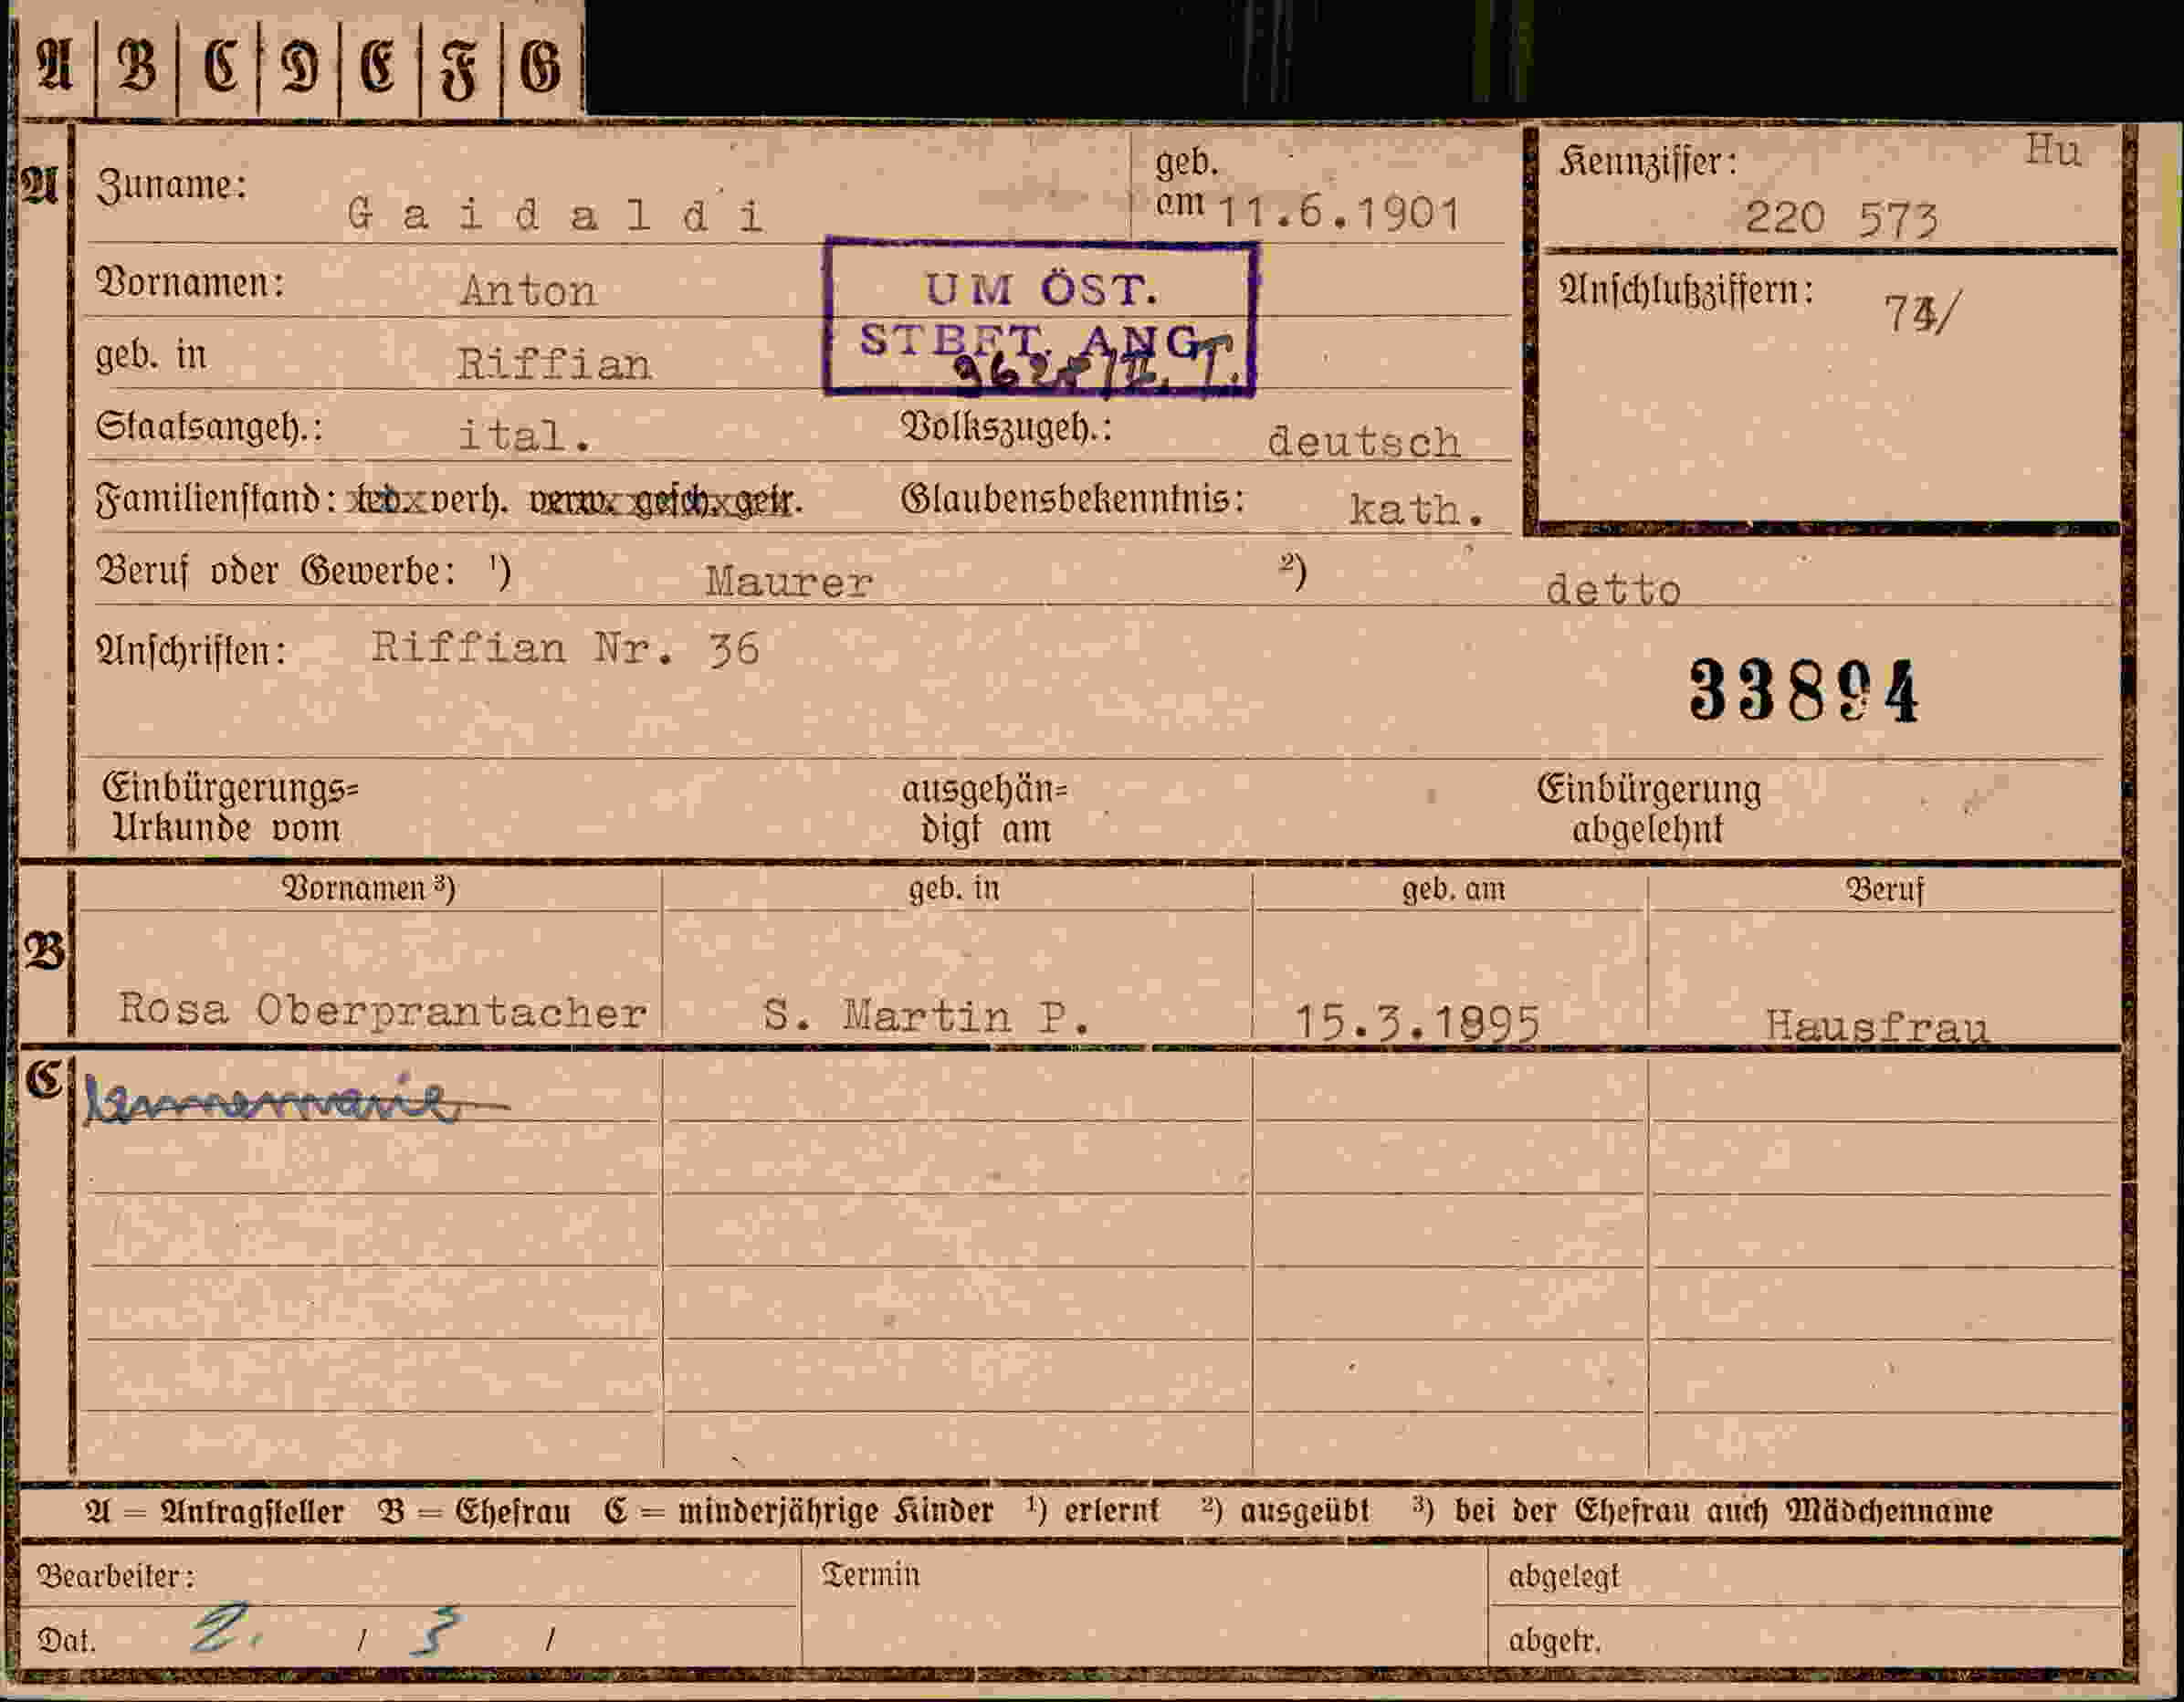 A B C D E F G
A Zuname: Gaidaldi geb. am 11.6.1901 Kennziffer: 220 573 Hu
Vornamen: Anton Anschlußziffern:
UM ÖST.
STBFT. ANG.
geb. in Riffian
Staatsangeh.: ital. Volkszugeh.: deutsch
Familienstand: led. verh. verw. gesch. getr. Glaubensbekenntnis: kath.
Beruf oder Gewerbe: 1) Maurer 2) detto
Anschriften: Riffian Nr. 36
33894
Einbürgerungs=
Urkunde vom
ausgehän=
digt am
Einbürgerung
abgelehnt
B Vornamen 3) geb. in geb. am Beruf
Rosa Oberprantacher S. Martin P. 15.3.1895 Hausfrau
C Annemarie
A = Antragsteller B = Ehefrau C = minderjährige Kinder 1) erlernt 2) ausgeübt 3) bei der Ehefrau auch Mädchenname
Bearbeiter: Termin abgelegt
Dat. 2. / 3 / abgetr.